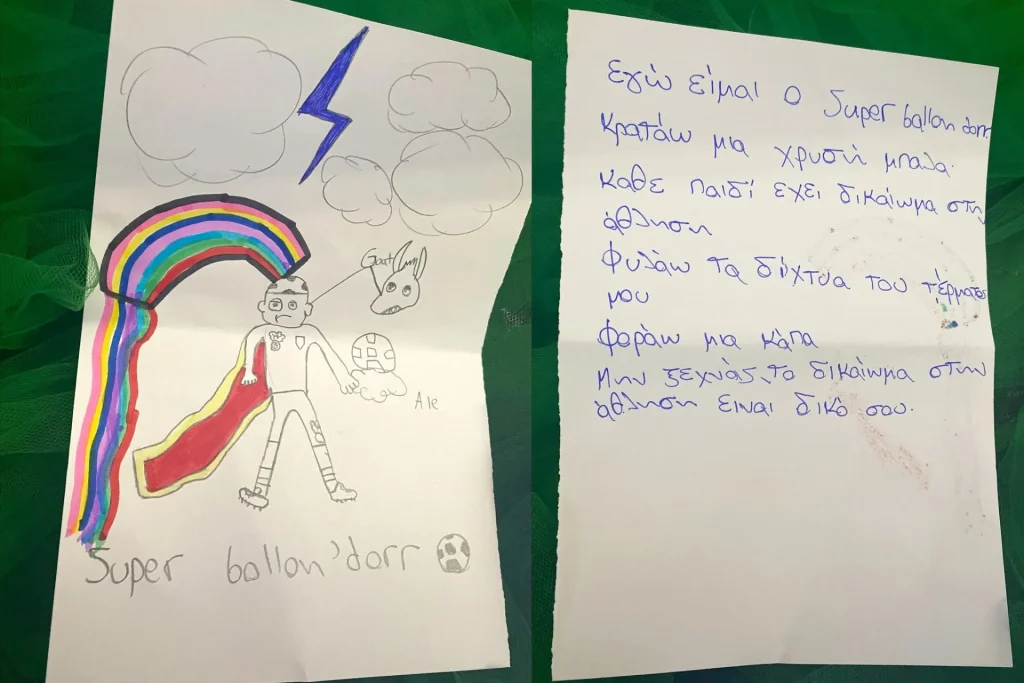 Goat
Ale
Super ballon'dorr
εγώ είμαι ο Super ballon'dorr
Κρατάω μια χρυσή μπάλα.
καθε παιδί εχει δικάιωμα στη
άθληση
Φυλάω τα δύχτυα του τέρματος
μου
φοράω μια κάπα
Μην ξεχνάς, το δικάιωμα στην
άθληση ειναι δικό σου.